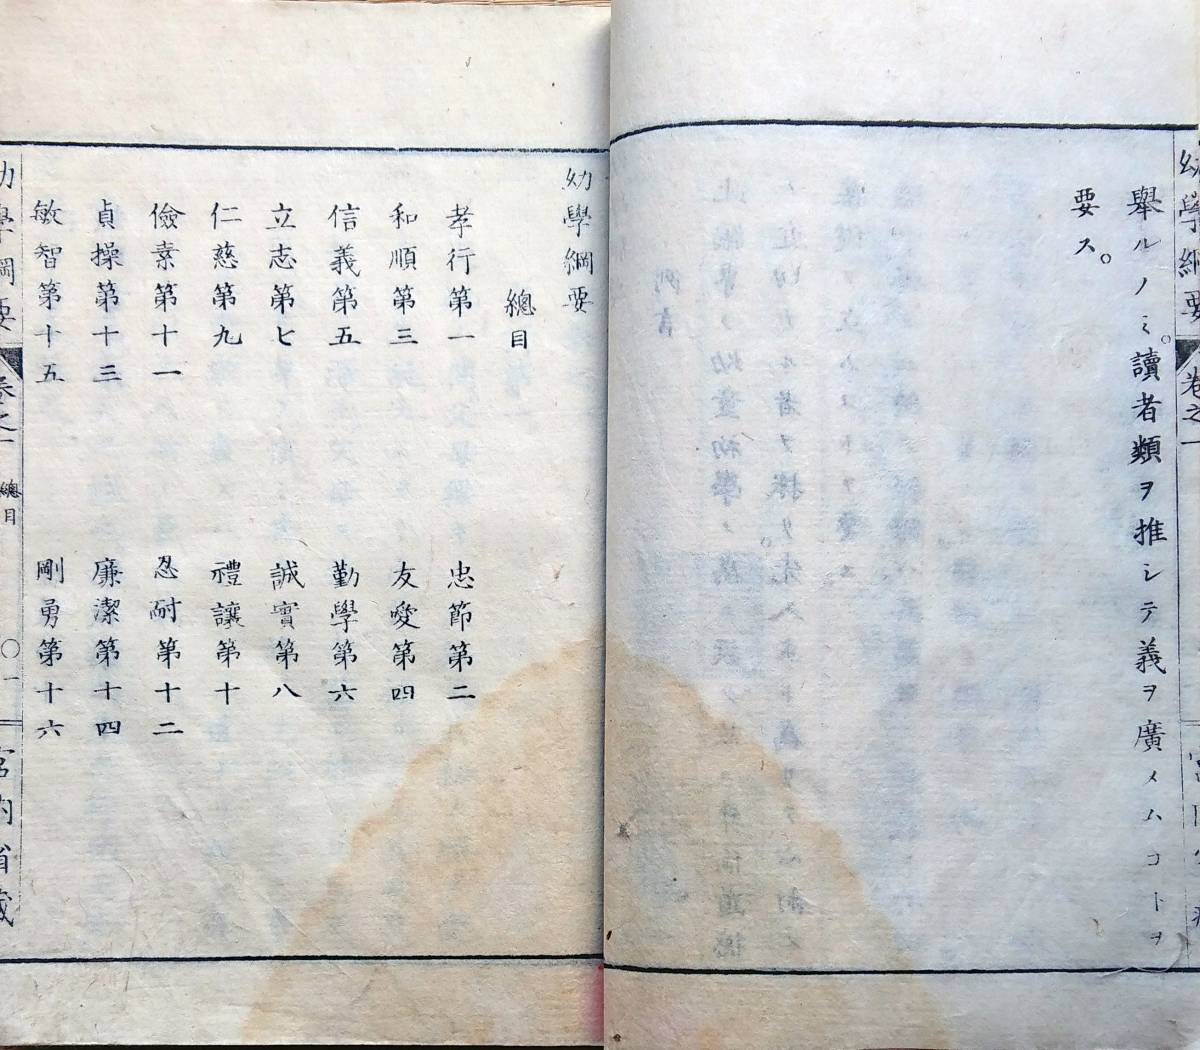 幼學綱要
卷之一
舉ルノミ。讀者類ヲ推シテ義ヲ廣メムコトヲ
要ス。
幼學綱要
總目
孝行第一 忠節第二
和順第三 友愛第四
信義第五 勤學第六
立志第七 誠實第八
仁慈第九 禮讓第十
儉素第十一 忍耐第十二
貞操第十三 廉潔第十四
敏智第十五 剛勇第十六
幼學綱要 卷之一 總目 〇一 宮內省藏